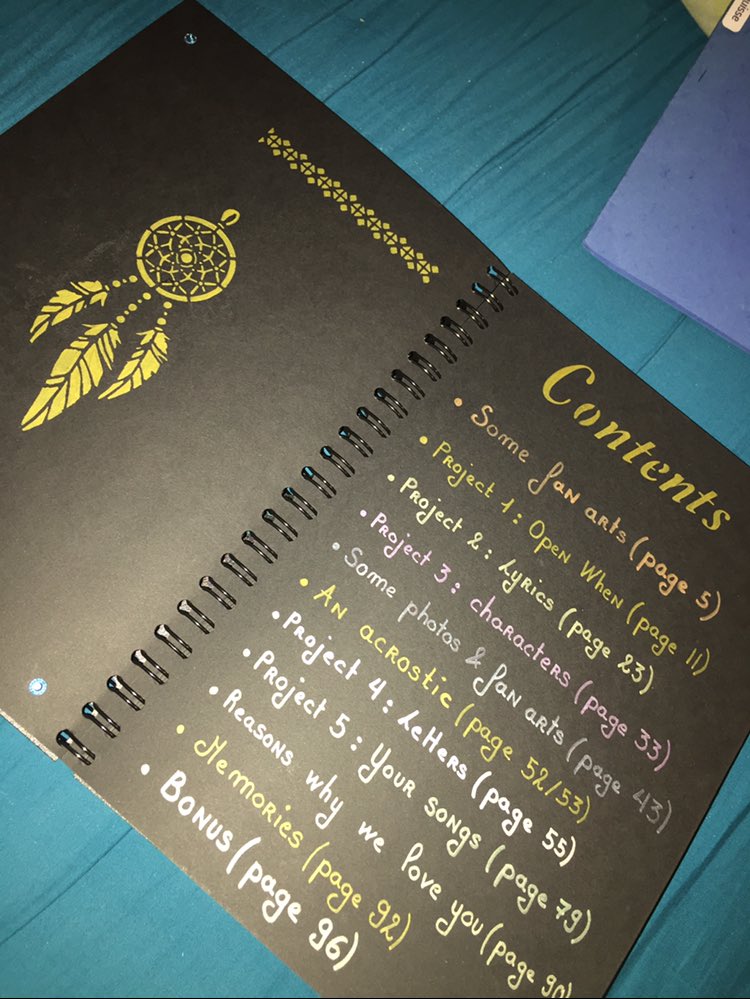 Contents
• Some fan arts (page 5)
• Project 1 : Open When (page 11)
• Project 2 : Lyrics (page 23)
• Project 3 : characters (page 33)
• Some photos & fan arts (page 43)
• An acrostic (page 52/53)
• Project 4 : Letters (page 55)
• Project 5 : Your songs (page 79)
• Reasons why we love you (page
• Memories (page 92)
• Bonus (page 96)
uisse